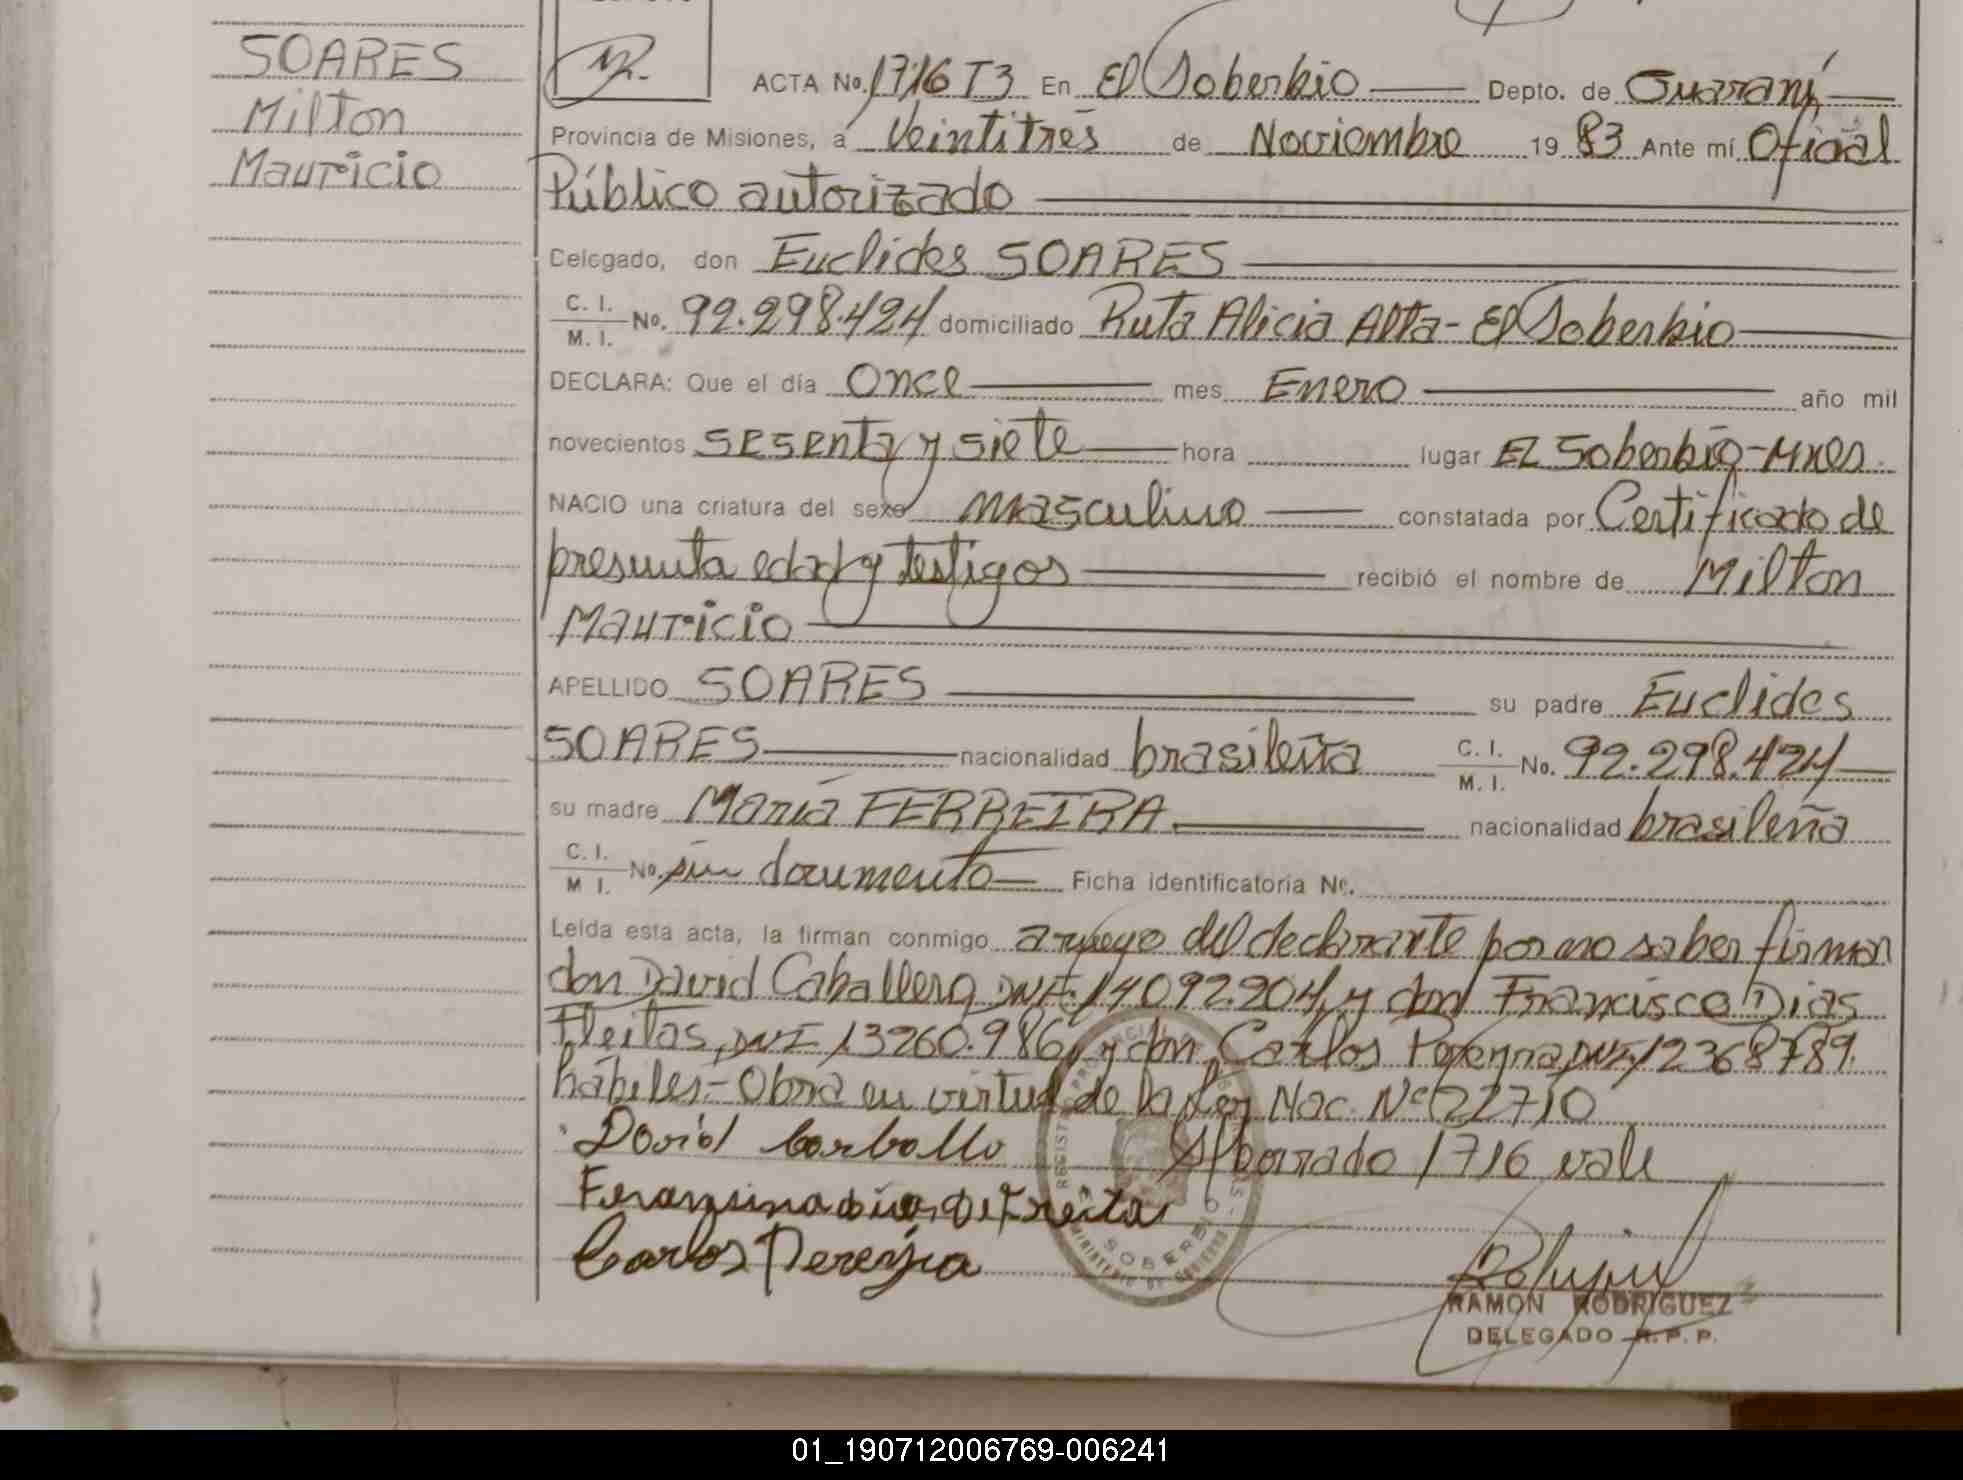 SOARES
Milton
Mauricio
ACTA No. 1716 T3 En El Soberbio Depto. de Guaraní
Provincia de Misiones, a Veintitrés de Noviembre 19 83 Ante mí Oficial
Público autorizado
Delegado, don Euclides SOARES
C. I.
M. I. No. 92.298.424 domiciliado Ruta Alicia Alta - El Soberbio
DECLARA: Que el día Once mes Enero año mil
novecientos sesenta y siete hora lugar El Soberbio - Mnes.
NACIO una criatura del sexo masculino constatada por Certificado de
presunta edad y testigos recibió el nombre de Milton
Mauricio
APELLIDO SOARES su padre Euclides
SOARES nacionalidad brasileña C. I.
M. I. No. 92.298.424
su madre María FERREIRA nacionalidad brasileña
C. I.
M. I. No. sin documento Ficha identificatoria No.
Leída esta acta, la firman conmigo a ruego del declarante por no saber firmar
don David Caballero DNI. 14092.204, y don Francisco Dias
Fleitas, DNI 13260.986, y don Carlos Pereyra, DNI. 12368789.
hábiles.- Obra en virtud de la Ley Nac. Nº 22710
David
borrado 1716 vale
Carlos Pereyra
REGISTRO PROVINCIAL
SOBERBIO
MINISTERIO DE GOBIERNO
RAMON RODRIGUEZ
DELEGADO R. P. P.
01_190712006769-006241